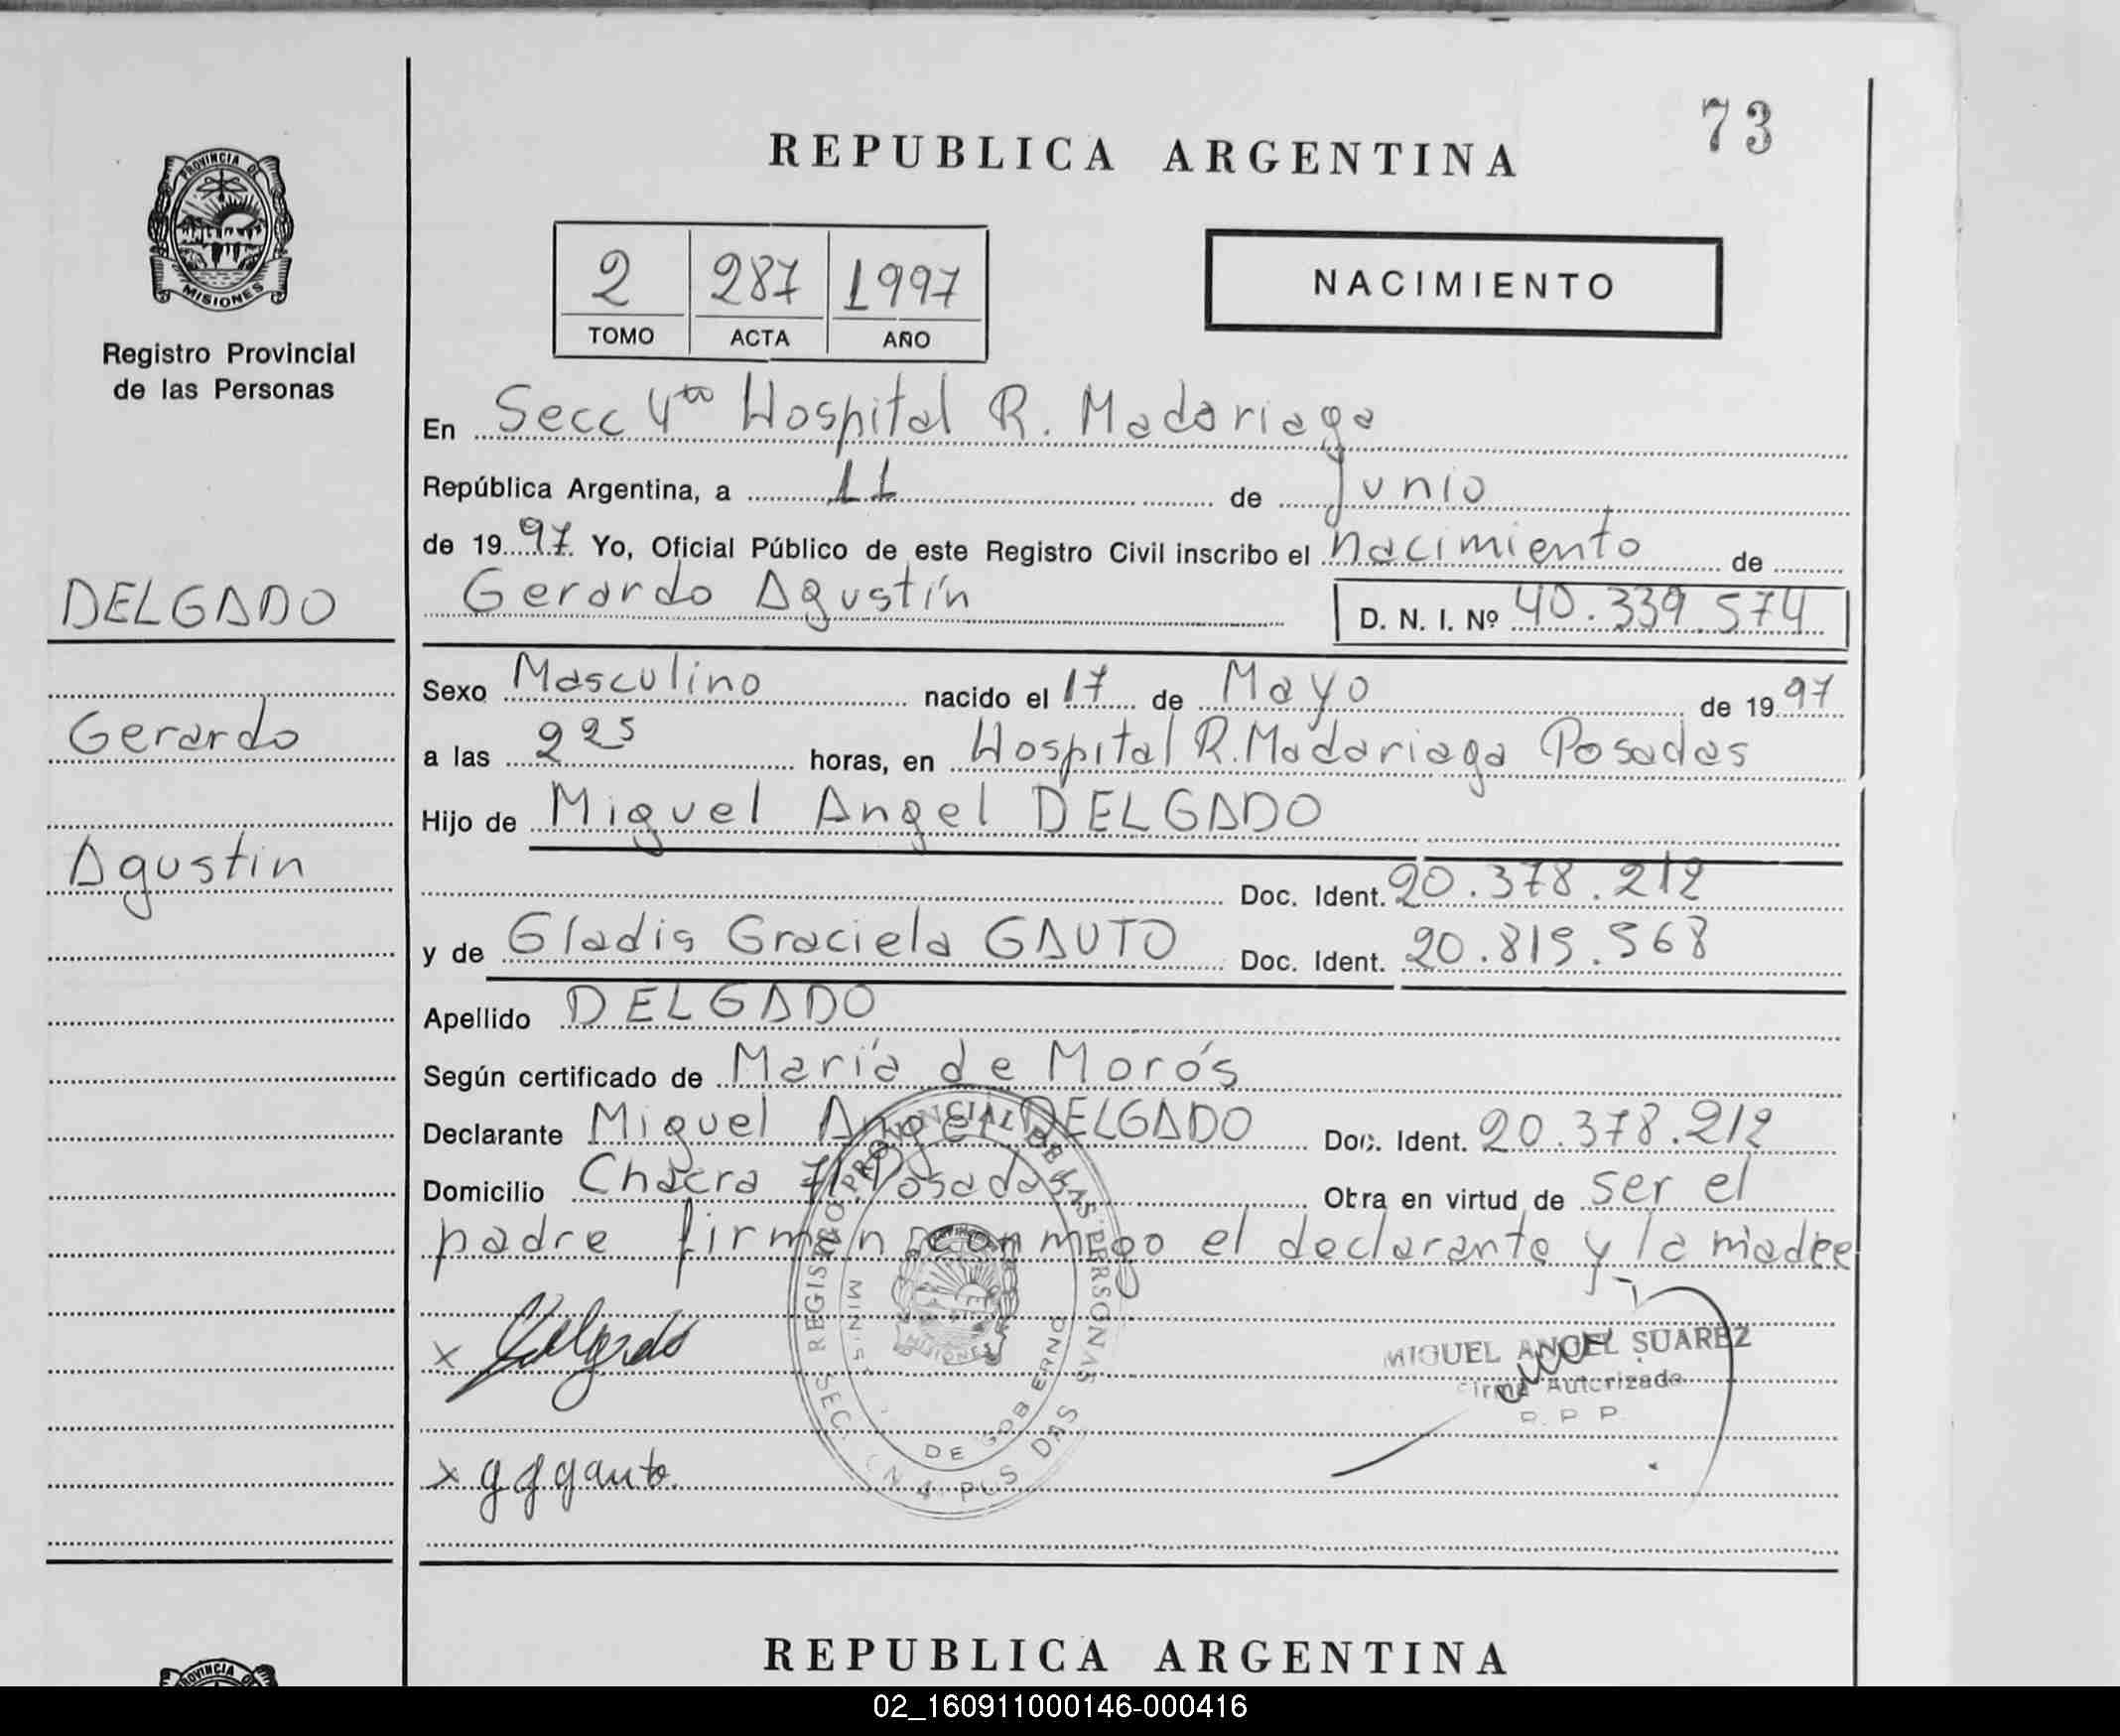 73
REPUBLICA ARGENTINA
PROVINCIA DE
MISIONES
Registro Provincial
de las Personas
2 287 1997
TOMO ACTA AÑO
NACIMIENTO
En Secc 4ta Hospital R. Madariaga
República Argentina, a 11 de Junio
de 1997. Yo, Oficial Público de este Registro Civil inscribo el nacimiento de
DELGADO
Gerardo Agustín D. N. I. Nº 40.339.574
Sexo Masculino nacido el 17 de Mayo de 1997
Gerardo
a las 2 25 horas, en Hospital R. Madariaga Posadas
Hijo de Miguel Angel DELGADO
Agustin
Doc. Ident. 20.378.212
y de Gladis Graciela GAUTO Doc. Ident. 20.815.568
Apellido DELGADO
Según certificado de María de Morós
Declarante Miguel Angel DELGADO Doc. Ident. 20.378.212
Domicilio Chacra 71 Posadas Obra en virtud de ser el
padre firman conmigo el declarante y la madre
REGISTRO PROVINCIAL DE LAS PERSONAS
MISIONES
DE GOBERNO
x Delgado
MIGUEL ANGEL SUAREZ
Firma Autorizada
R. P. P.
x g g gauto.
REPUBLICA ARGENTINA
PROVINCIA
02_160911000146-000416